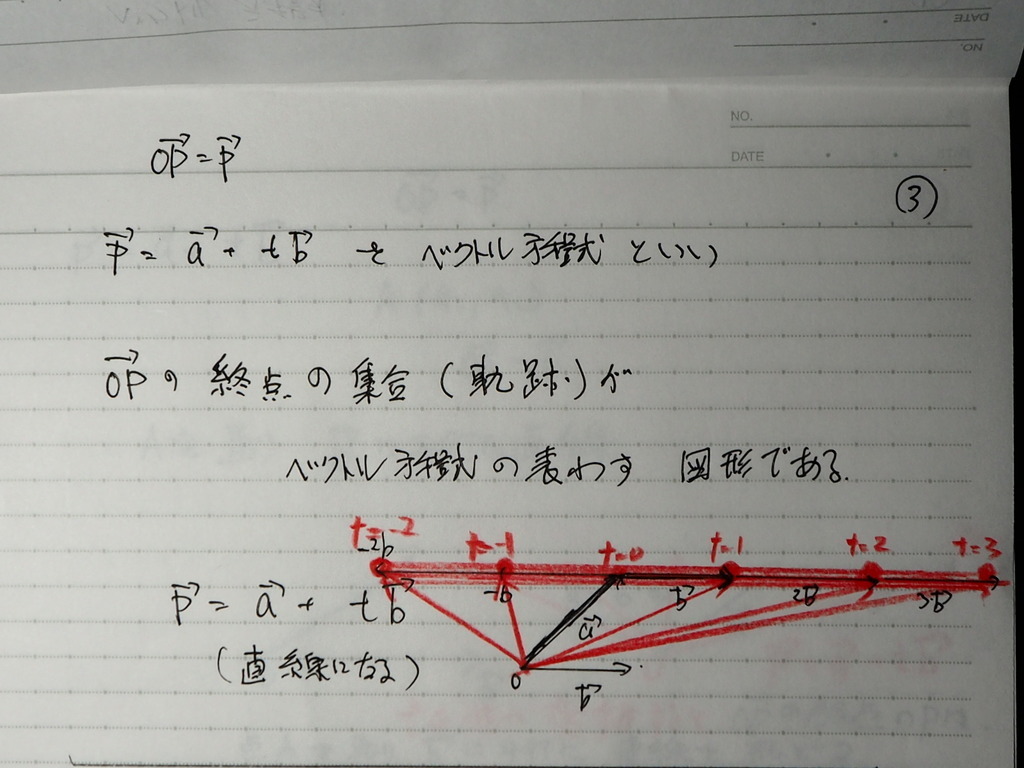 DATE
NO.
NO.
DATE
③
→OP = →P
→P = →a + t→b を ベクトル方程式 といい
→OP の 終点の集合 (軌跡) が
ベクトル方程式 の表わす 図形である.
t=-2 t=-1 t=0 t=1 t=2 t=3
-2b -b →b 2→b 3→b
→P = →a + t→b
→a
(直線になる)
0
→b